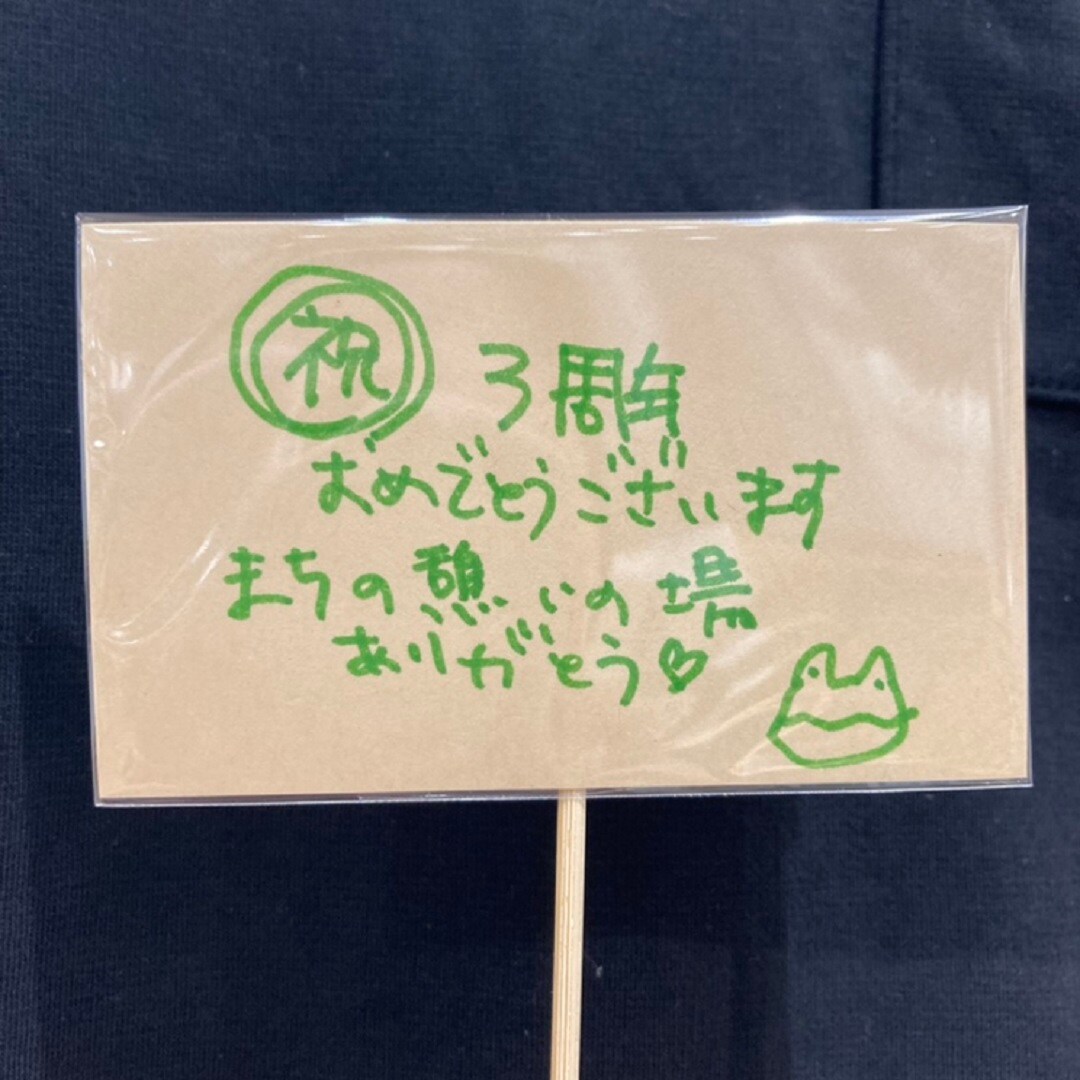 祝 3周年
おめでとうございます
まちの憩いの場
ありがとう♡